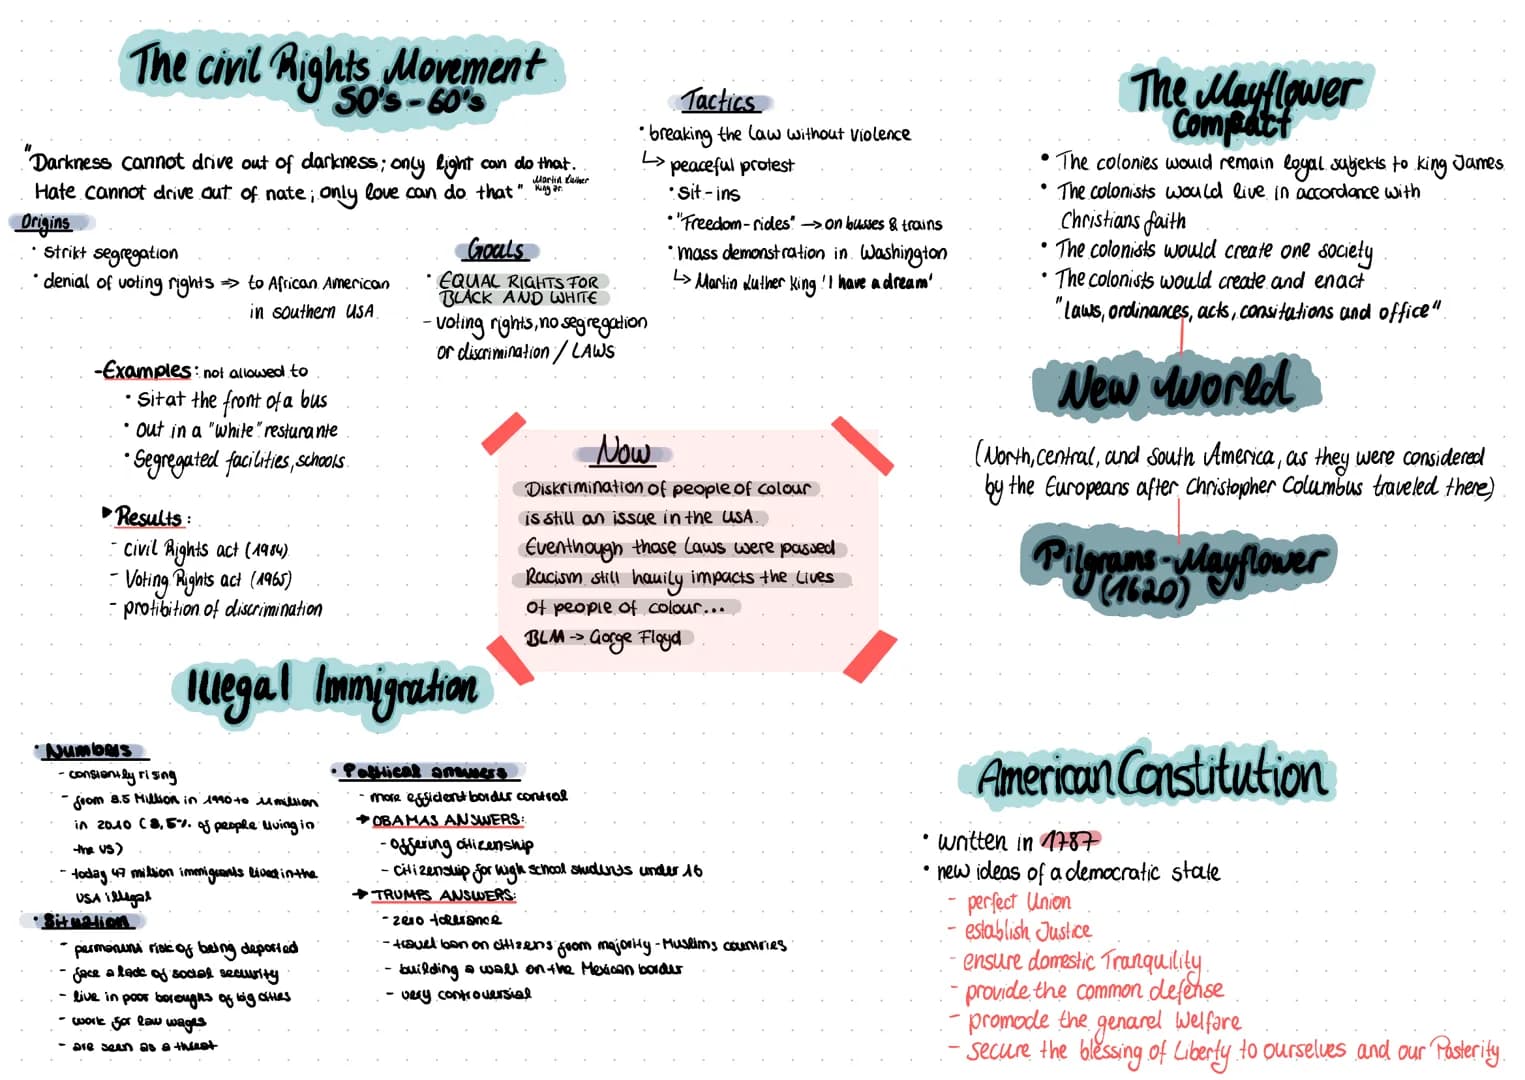 The civil Rights Movement
50's - 60's
"Darkness cannot drive out of darkness; only light can do that.
Hate cannot drive out of nate; only love can do that" Martin Luther King Jr.
Origins
· strikt segregation
· denial of voting rights => to African American
in southern USA
-Examples: not allowed to
· Sit at the front of a bus
· Out in a "white" resturante
· Segregated facilities, schools
▸ Results:
- civil Rights act (1964)
- Voting Rights act (1965)
- protibition of discrimination
Goals
· EQUAL RIGHTS FOR
BLACK AND WHITE
- voting rights, no segregation
or discrimination / LAWS
Tactics
· breaking the law without violence
↳ peaceful protest
· Sit-ins
· "Freedom-rides" → on busses & trains
· mass demonstration in Washington
↳ Martin Luther King 'I have a dream'
Now
Diskrimination of people of colour
is still an issue in the USA.
Eventhough those Laws were passed
Racism still hauily impacts the Lives
of people of colour...
BLM -> Gorge Floyd
The Mayflower
Compact
• The colonies would remain loyal subjekts to King James
• The colonists would live in accordance with
Christians faith
• The colonists would create one society
· The colonists would create and enact
"laws, ordinances, acts, consitutations and office"
New World
(North, central, and South America, as they were considered
by the Europeans after Christopher Columbus traveled there)
Pilgrams - Mayflower
(1620)
Illegal Immigration
· Numbers
- constantly rising
- from 3.5 Million in 1990 to 11 million
in 2010 (3,5% of people living in
the US)
- today 47 million immigrants lived in the
USA illegal
· Situation
- permanent risk of being deported
- face a lack of social security
- live in poor boroughs of big cities
- work for low wages
- are seen as a threat
· Political answers
- more efficient border control
→ OBAMAS ANSWERS:
- offering citizenship
- citizenship for high school students under 16
→ TRUMPS ANSWERS:
- zero tolerance
- travel ban on citizens from majority-Muslims countries
- building a wall on the Mexican border
- very controversial
American Constitution
• written in 1787
• new ideas of a democratic state
- perfect Union
- establish Justice
- ensure domestic Tranquility
- provide the common defense
- promode the genarel Welfare
- secure the blessing of Liberty to ourselves and our Posterity